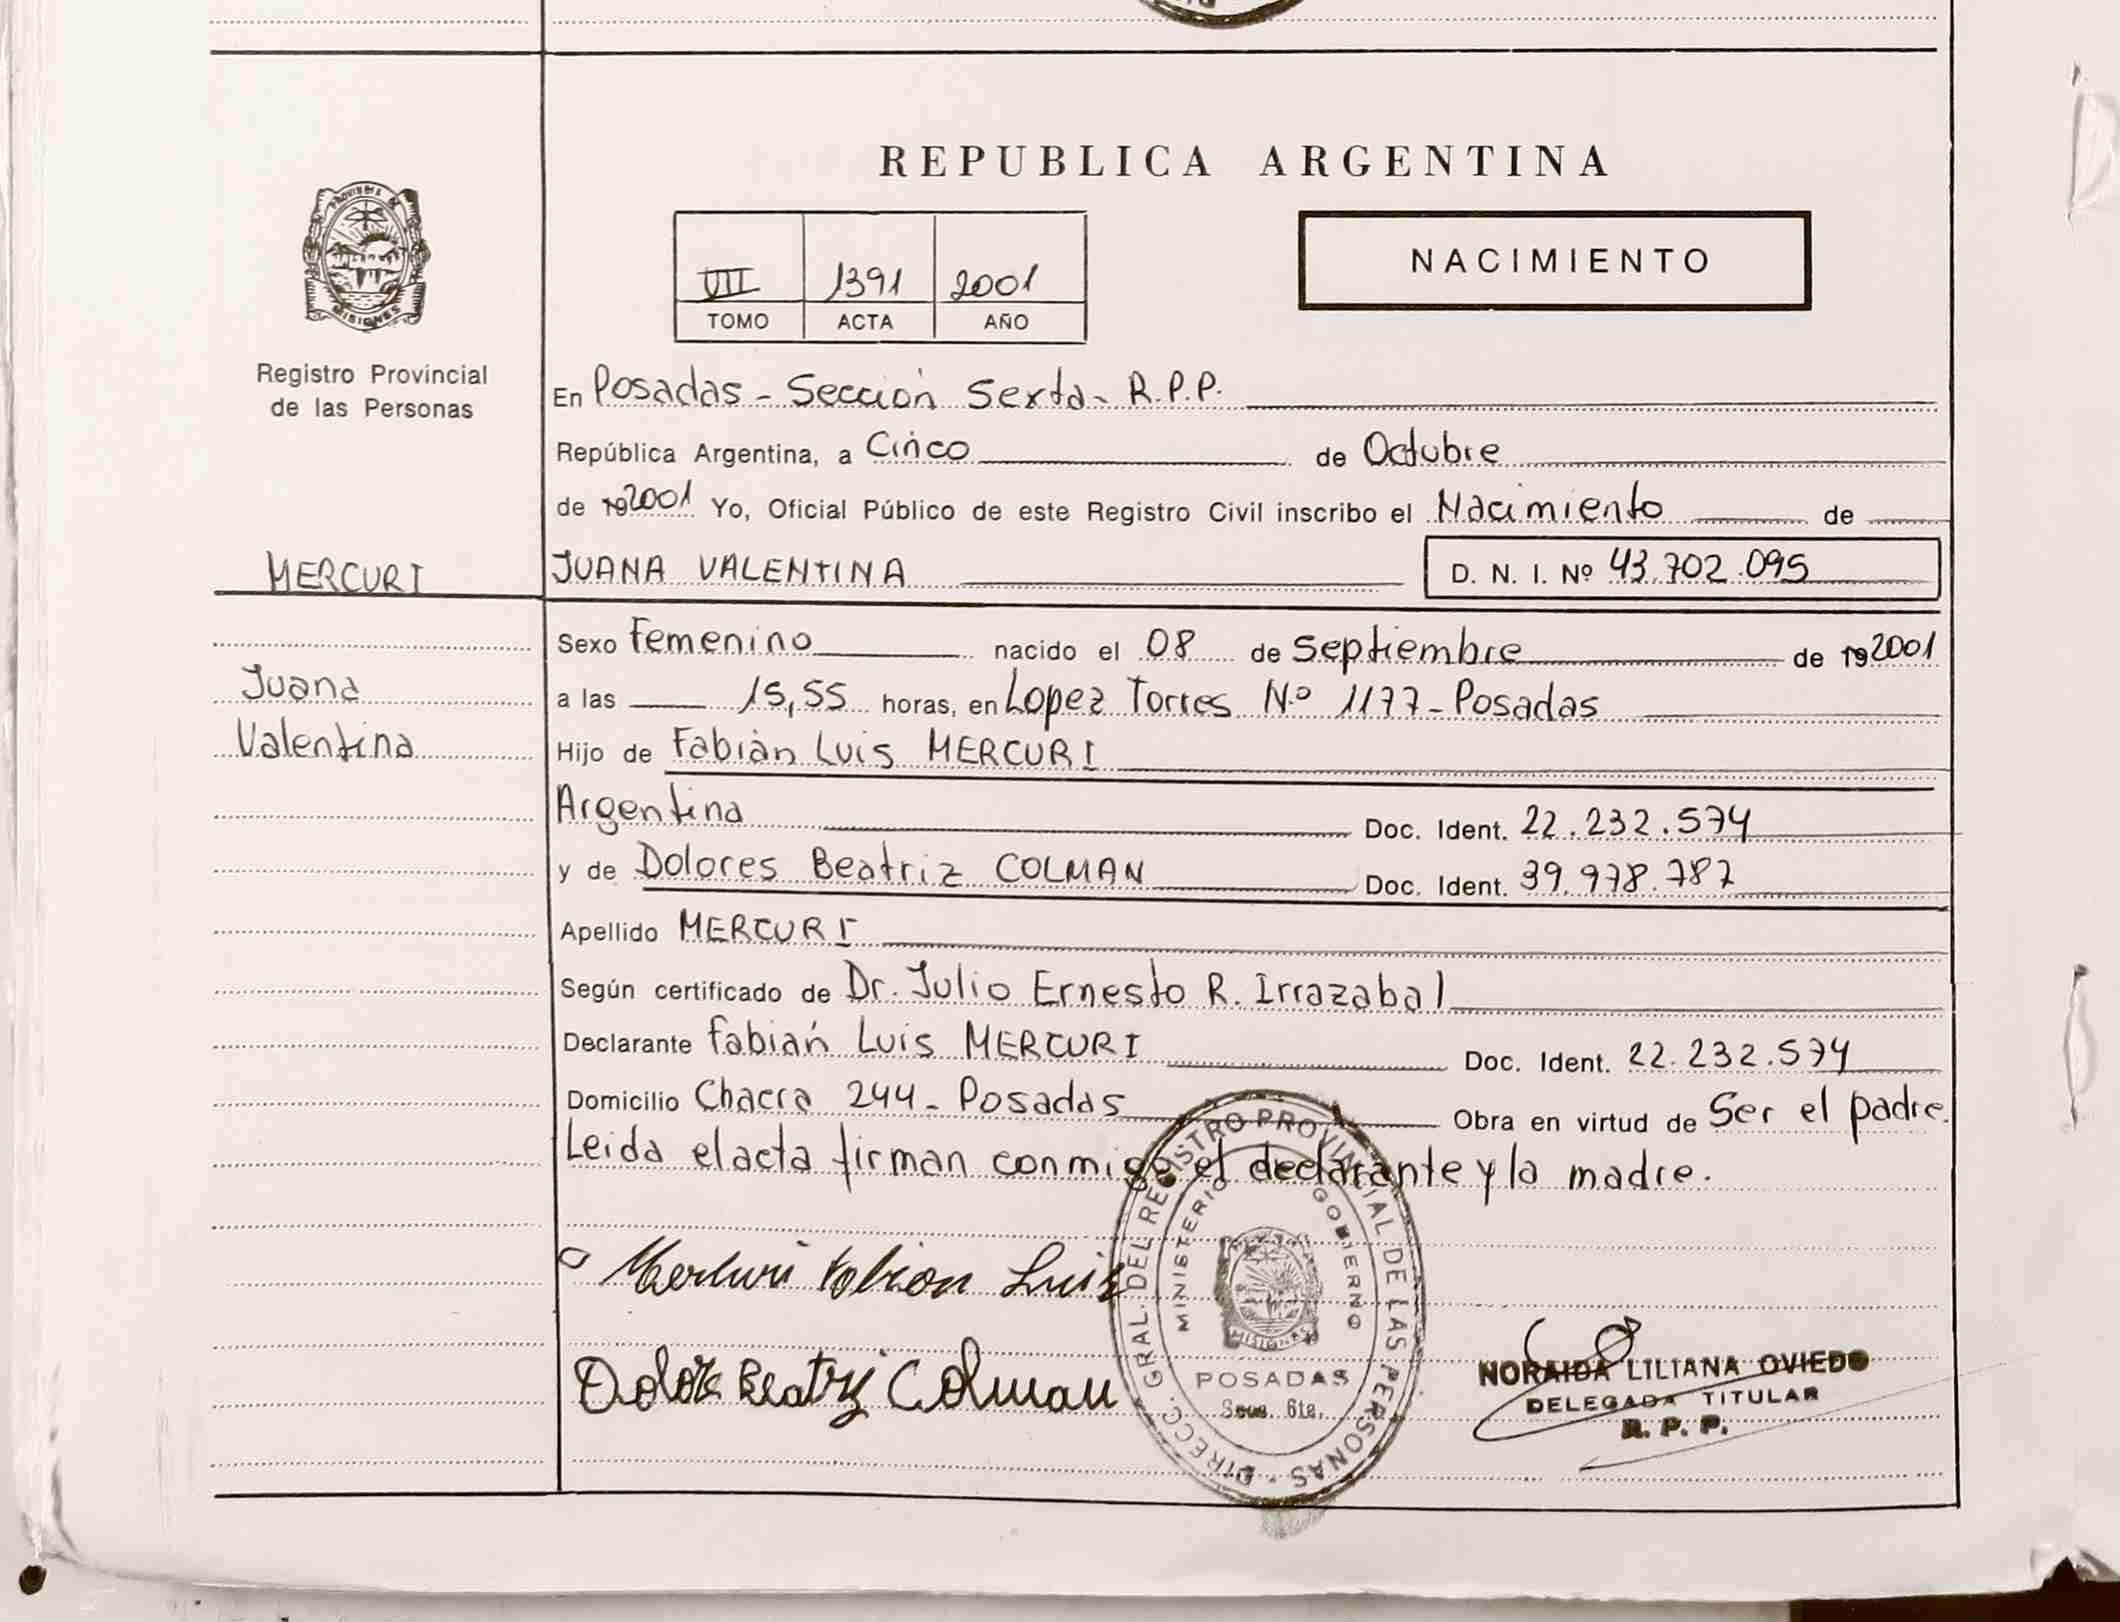 REPUBLICA ARGENTINA
PROVINCIA DE
MISIONES
Registro Provincial
de las Personas
VII 1391 2001
TOMO ACTA AÑO
NACIMIENTO
En Posadas - Sección Sexta - R.P.P.
República Argentina, a Cinco de Octubre
de 192001 Yo, Oficial Público de este Registro Civil inscribo el Nacimiento de
MERCURI
JUANA VALENTINA D. N. I. Nº 43.702.095
Juana
Valentina
Sexo Femenino nacido el 08 de Septiembre de 192001
a las 15,55 horas, en Lopez Torres N.º 1177 - Posadas
Hijo de Fabián Luis MERCURI
Argentina Doc. Ident. 22.232.574
y de Dolores Beatriz COLMAN Doc. Ident. 39.978.787
Apellido MERCURI
Según certificado de Dr. Julio Ernesto R. Irrazabal
Declarante Fabián Luis MERCURI Doc. Ident. 22.232.574
Domicilio Chacra 244 - Posadas Obra en virtud de Ser el padre.
Leida el acta firman conmigo el declarante y la madre.
Mercuri Fabian Luis
Dolores Beatriz Colman
DIRECC. GRAL. DEL REGISTRO PROVINCIAL DE LAS PERSONAS
MINISTERIO GOBIERNO
MISIONES
POSADAS
Secc. 6ta.
NORAIDA LILIANA OVIEDO
DELEGADA TITULAR
R. P. P.